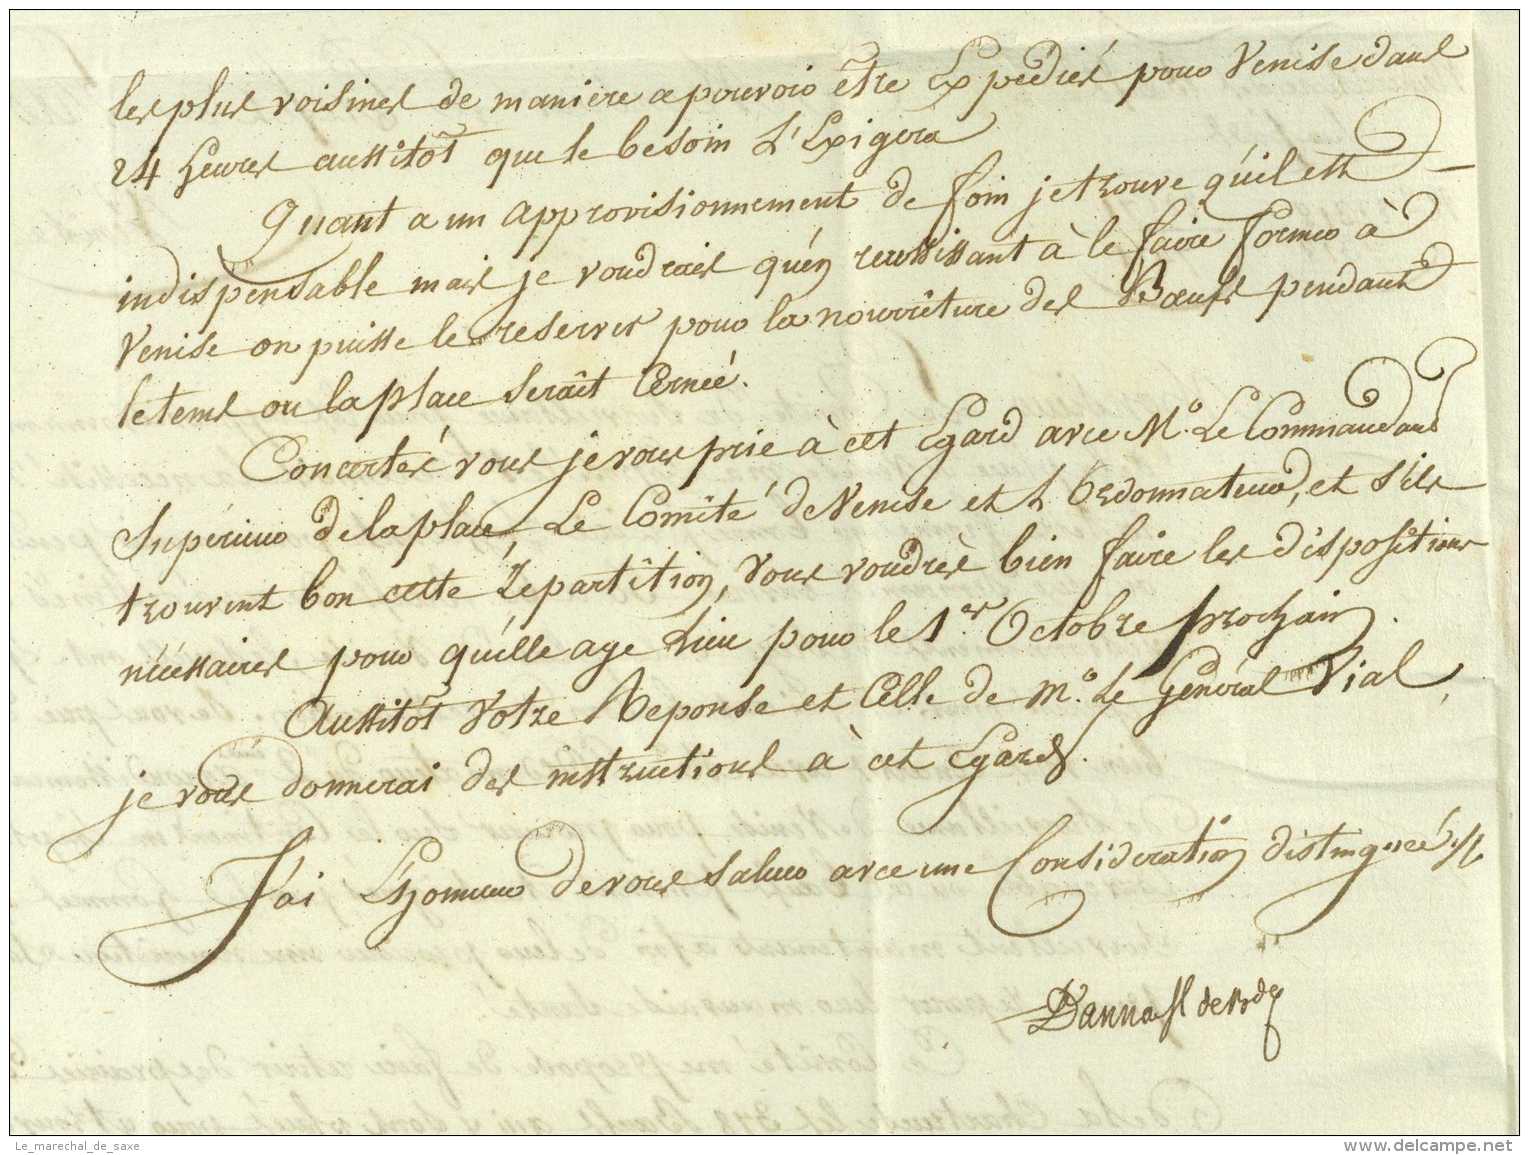 les plus voisines de manière a pouvoir être Expédiés pour Venise dans
24 heures aussitôt que le besoin L'Exigera
Quant a un approvisionnement de foin je trouve qu'il est
indispensable mais je voudrais qu'en reussissant à le faire former à
Venise on puisse le reserver pour la nourriture des Bœufs pendant
le tems ou la place serait Cernée.
Concertés vous je vous prie à cet Egard avec Mr. Le Commandant
Supérieur de la place, Le Comité de Venise et L'Ordonnateur, et s'ils
trouvent bon cette répartition, vous voudrès bien faire les dispositions
nécessaires pour qu'elle aye lieu pour le 1er Octobre prochain.
Aussitôt votre Reponse et Celle de Mr. Le Général Vial,
je vous donnerai des instructions à cet Egard.
J'ai L'honneur de vous saluer avec une Considération distinguée
Le_marechal_de_saxe
www.delcampe.net